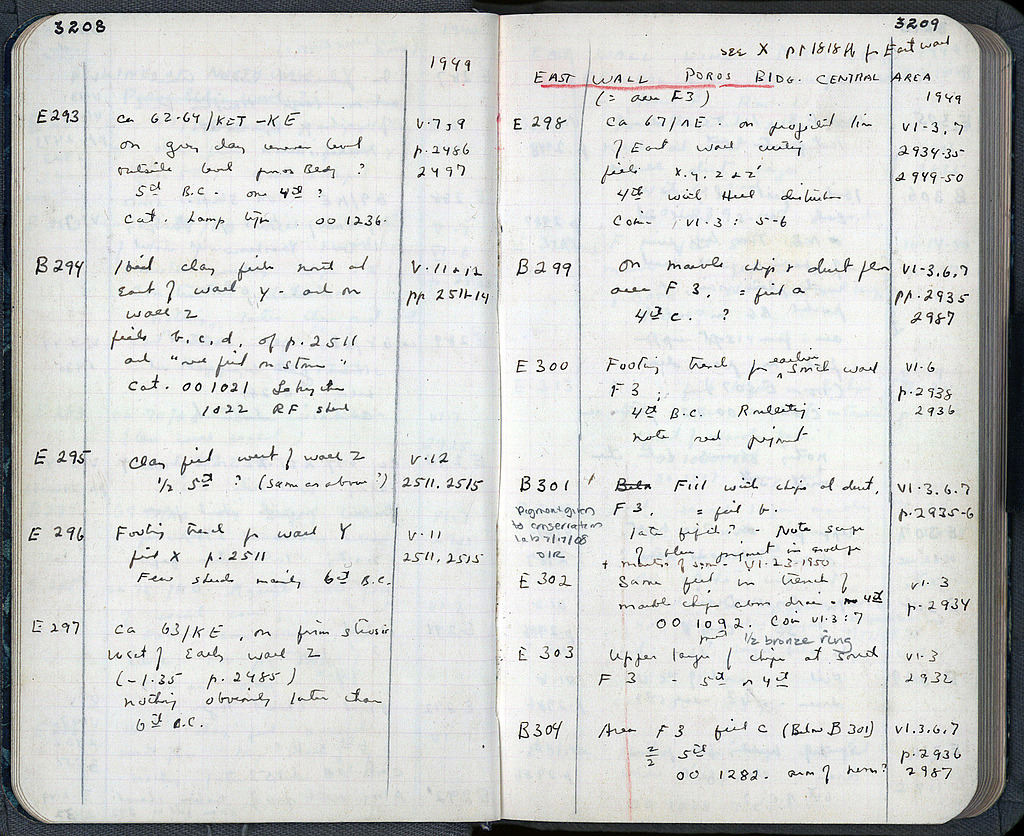 3208
1949
E 293 ca 62-64/KET-KE V·7,9
on clay level p.2486
outside poros Bldg ? 2497
5th B.C. or 4th ?
Cat. Lamp 00 1236.
B 294 clay fill north and V·11+12
East of wall Y - and on pp. 2511-14
wall Z
fills b.c.d. of p.2511
and "red fill on stone"
Cat. 00 1021 Lekythos
1022 RF sherd
E 295 Clay fill west of wall Z V·12
1/2 5th ? (same as above?) 2511, 2515
E 296 Footing trench for wall Y V·11
fill X p.2511 2511, 2515
Few sherds mainly 6th B.C.
E 297 ca 63/KE, on firm
west of Early wall Z
(-1.35 p.2485)
nothing obviously later than
6th B.C.
3209
see X pp 1818 ff for East wall
EAST WALL POROS BLDG. CENTRAL AREA
(= area F3) 1949
E 298 ca 67/NE · on line V1-3,7
of East wall 2934-35
field X.4.222' 2949-50
4th with Herul disturbance
Coin, V1·3: 5-6
B 299 on marble chips + dust floor V1-3,6,7
area F 3. = fill a pp. 2935
4th c. ? 2987
E 300 Footing trench for earlier South wall V1·6
F 3, p.2938
4th B.C. Rouletting 2936
note red pigment
B 301 Fill with chips and dust, V1-3.6.7
F 3. = fill b. p.2935-6
pigment given to conservation lab 7/17/08 DIR
late fifth? - Note
of blue pigment in envelope
+ of same V1-23-1950
E 302 Same fill in trench of V1·3
marble chips above drain · 4th p.2934
00 1092. Coin V1·3:7
1/2 bronze ring
E 303 Upper layer of chips at South V1-3
F 3 - 5th or 4th 2932
B 304 Area F 3 fill c (Below B 301) V1.3,6,7
2/2 5th p.2936
00 1282. arm of herm? 2987